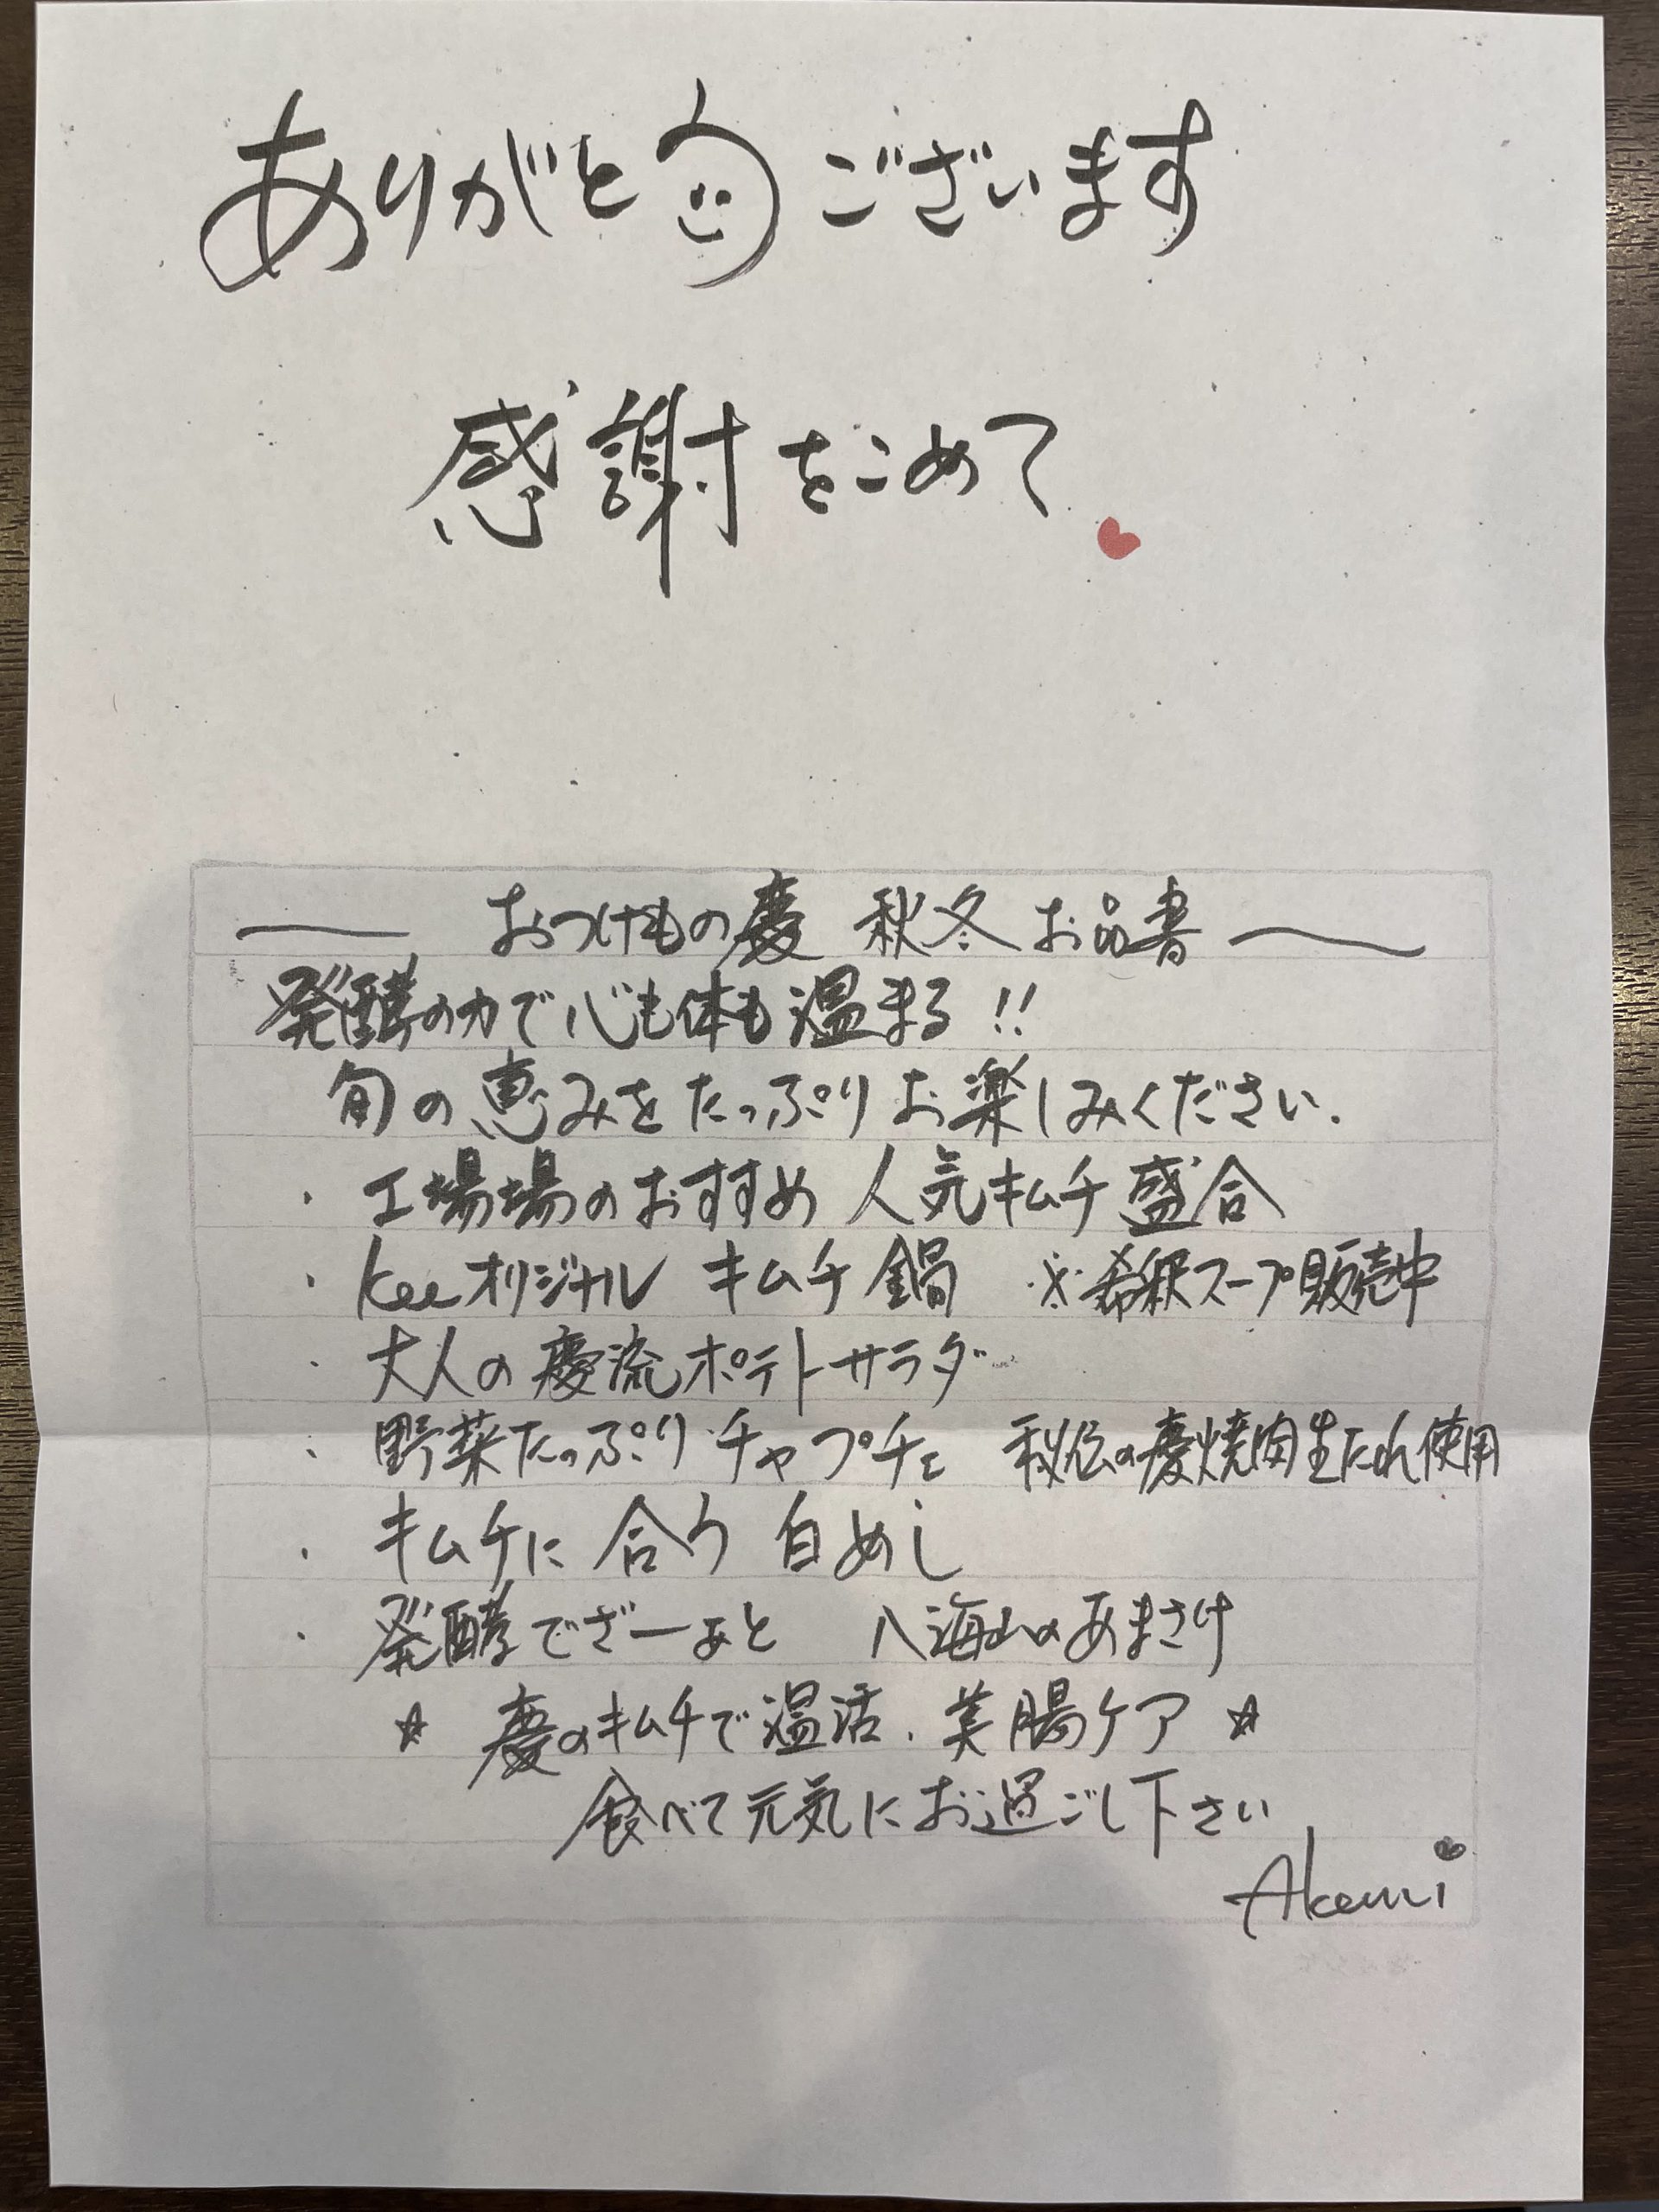 ありがとうございます
感謝をこめて
おつけもの慶 秋冬 お品書
発酵の力で心も体も温まる!!
旬の恵みをたっぷりお楽しみください.
・ 工場場のおすすめ 人気キムチ盛合
・ Keeオリジナル キムチ鍋 ※希釈スープ販売中
・ 大人の慶流ポテトサラダ
・ 野菜たっぷりチャプチェ 秘伝の慶焼肉生だれ使用
・ キムチに合う白めし
・ 発酵でざーあと 八海山のあまさけ
☆ 慶のキムチで温活、美腸ケア ☆
食べて元気にお過ごし下さい
Akemi